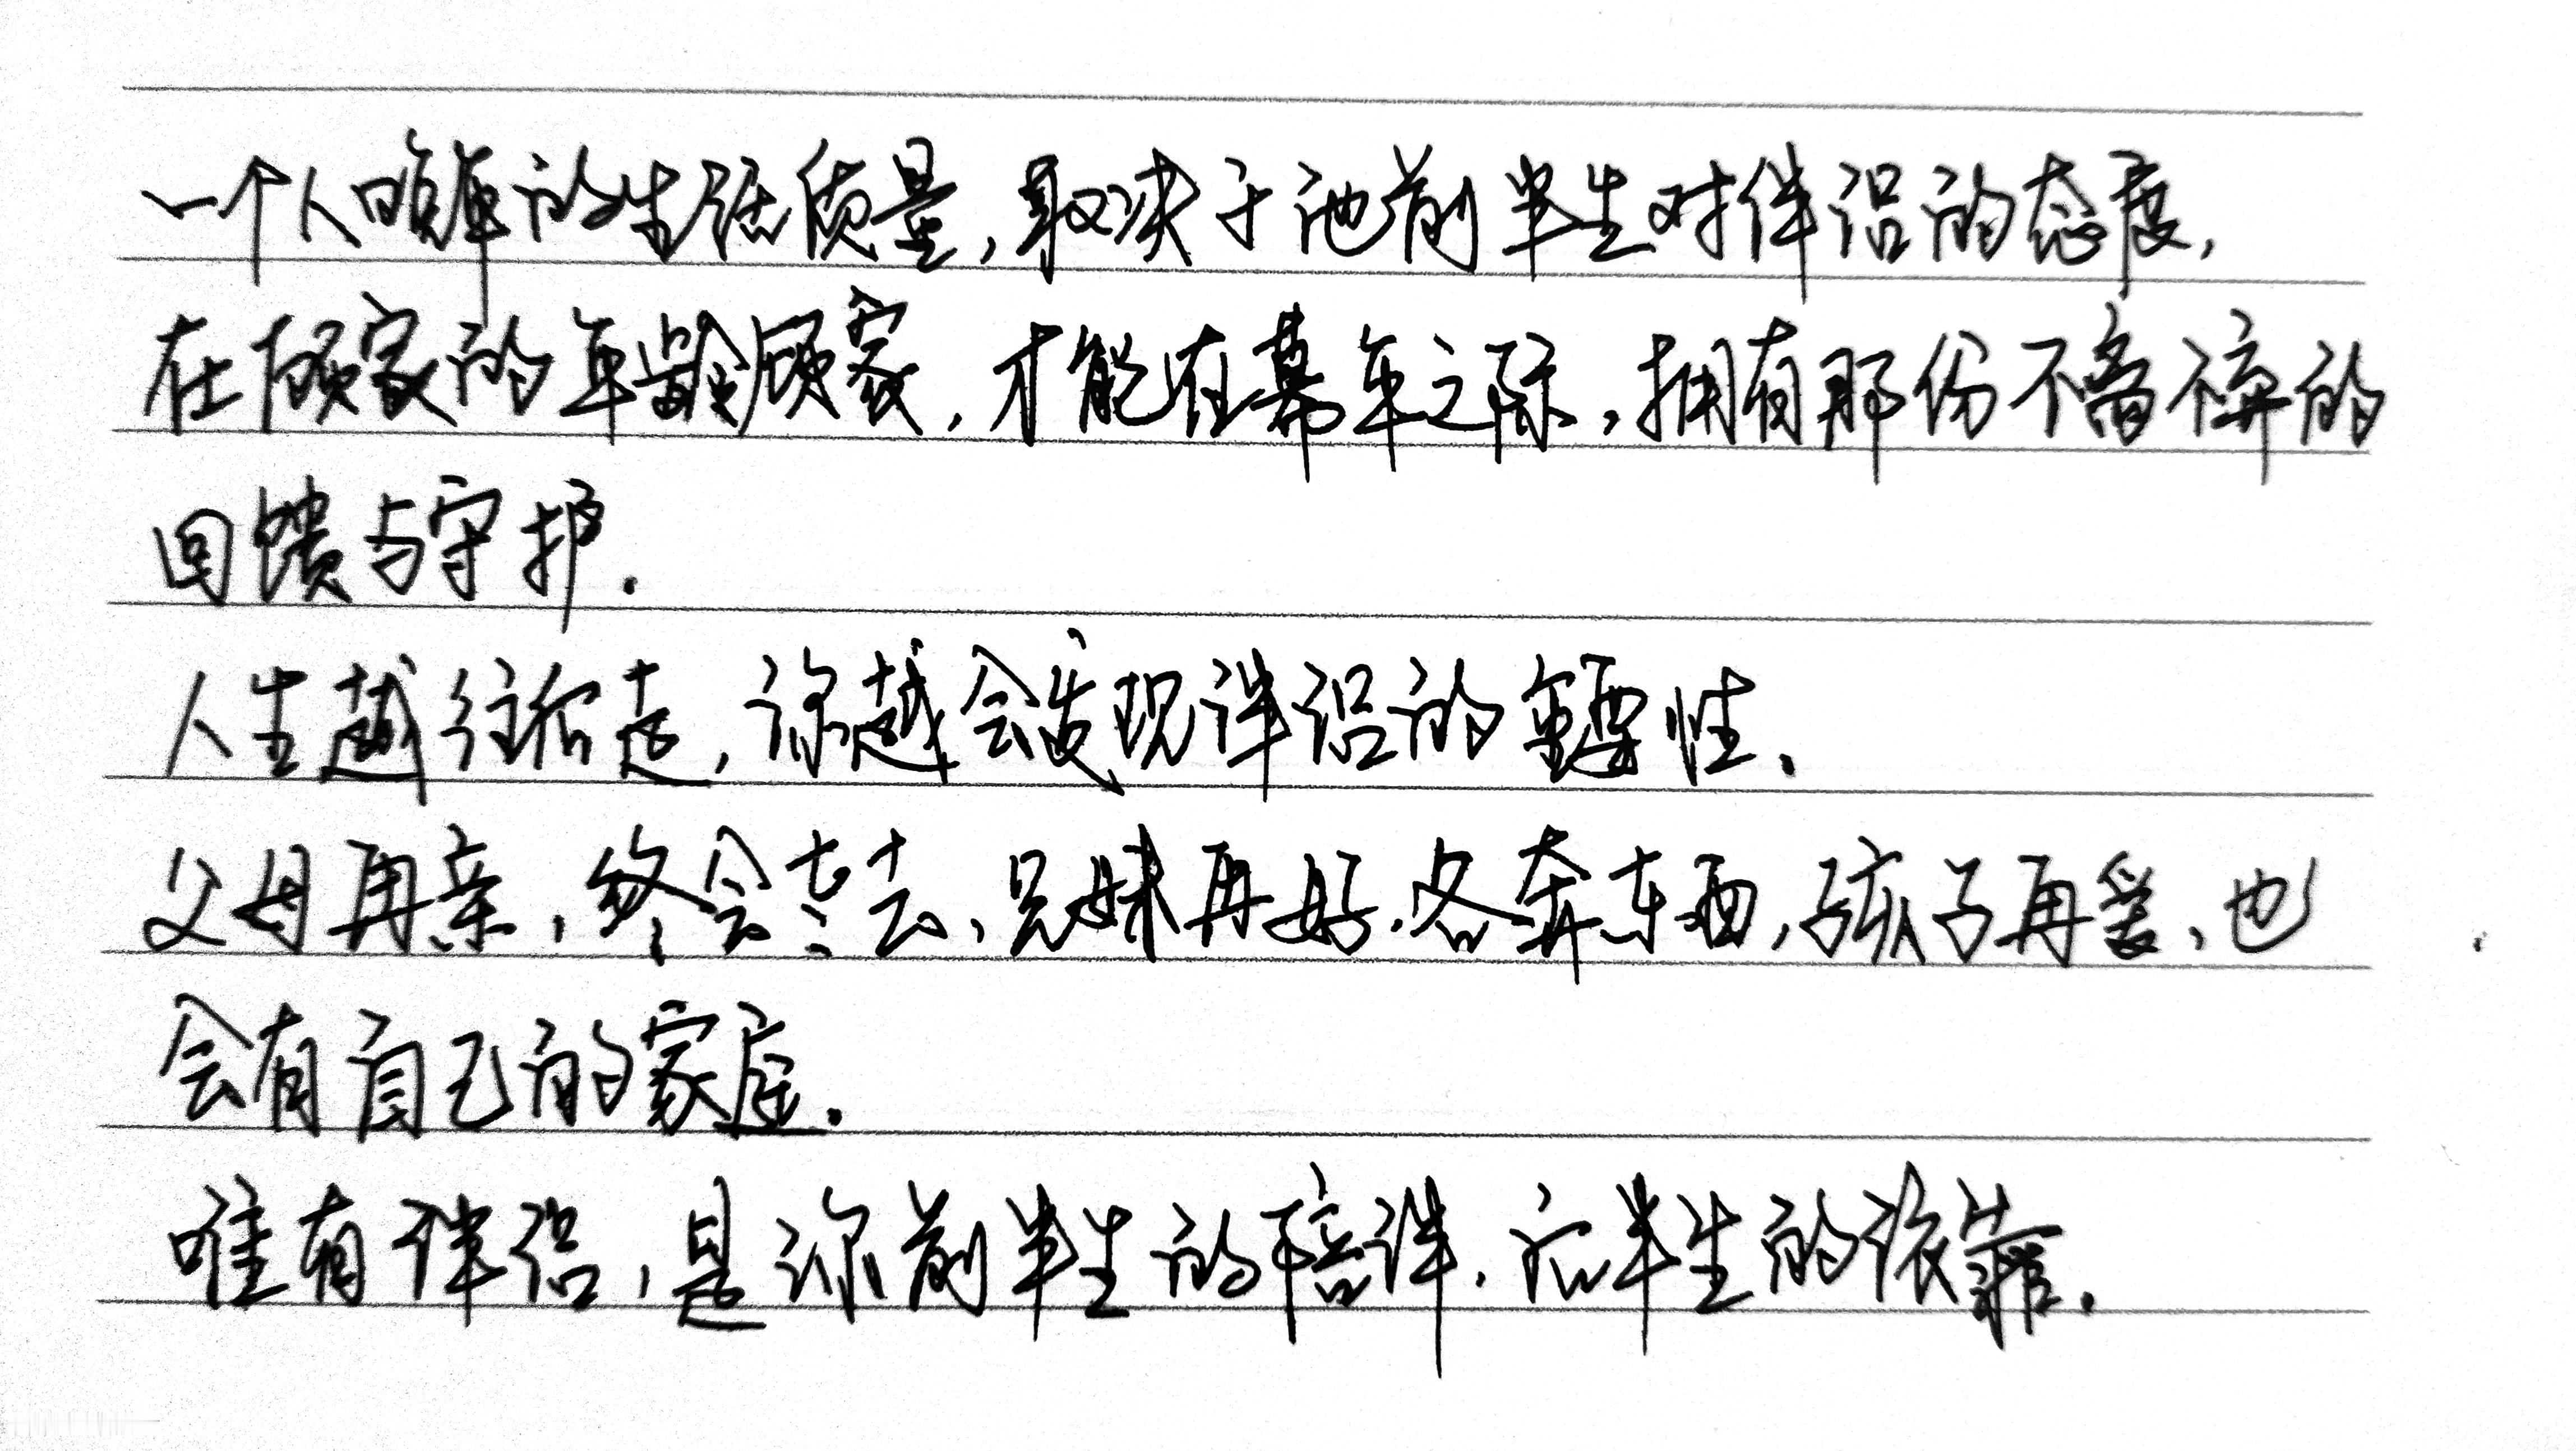 一个人晚年的生活质量,取决于他前半生对伴侣的态度,
在顾家的年龄顾家,才能在暮年之际,拥有那份不离不弃的
回馈与守护.
人生越往后走,你越会发现伴侣的重要性.
父母再亲,终会老去,兄妹再好,各奔东西,孩子再爱,也
会有自己的家庭.
唯有伴侣,是你前半生的陪伴,后半生的依靠.